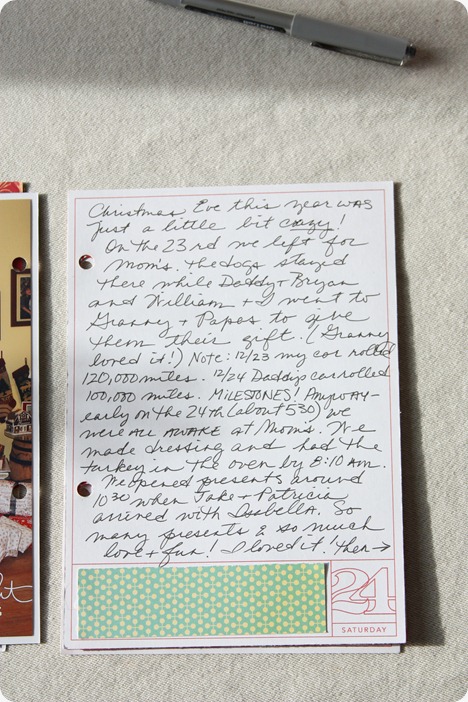 Christmas Eve this year was
just a little bit crazy!
On the 23rd we left for
Mom's. The dogs stayed
there while Daddy + Bryan
and William + I went to
Granny + Papas to give
them their gift. (Granny
loved it!) Note: 12/23 my car rolled
120,000 miles. 12/24 Daddy's car rolled
100,000 miles. MILESTONES! Anyway-
early on the 24th (about 530) we
were ALL AWAKE at Mom's. We
made dressing and had the
turkey in the oven by 8:10 am.
We opened presents around
1030 when Jake + Patricia
arrived with Isabella. So
many presents & so much
love + fun! I loved it! Then →
24
SATURDAY